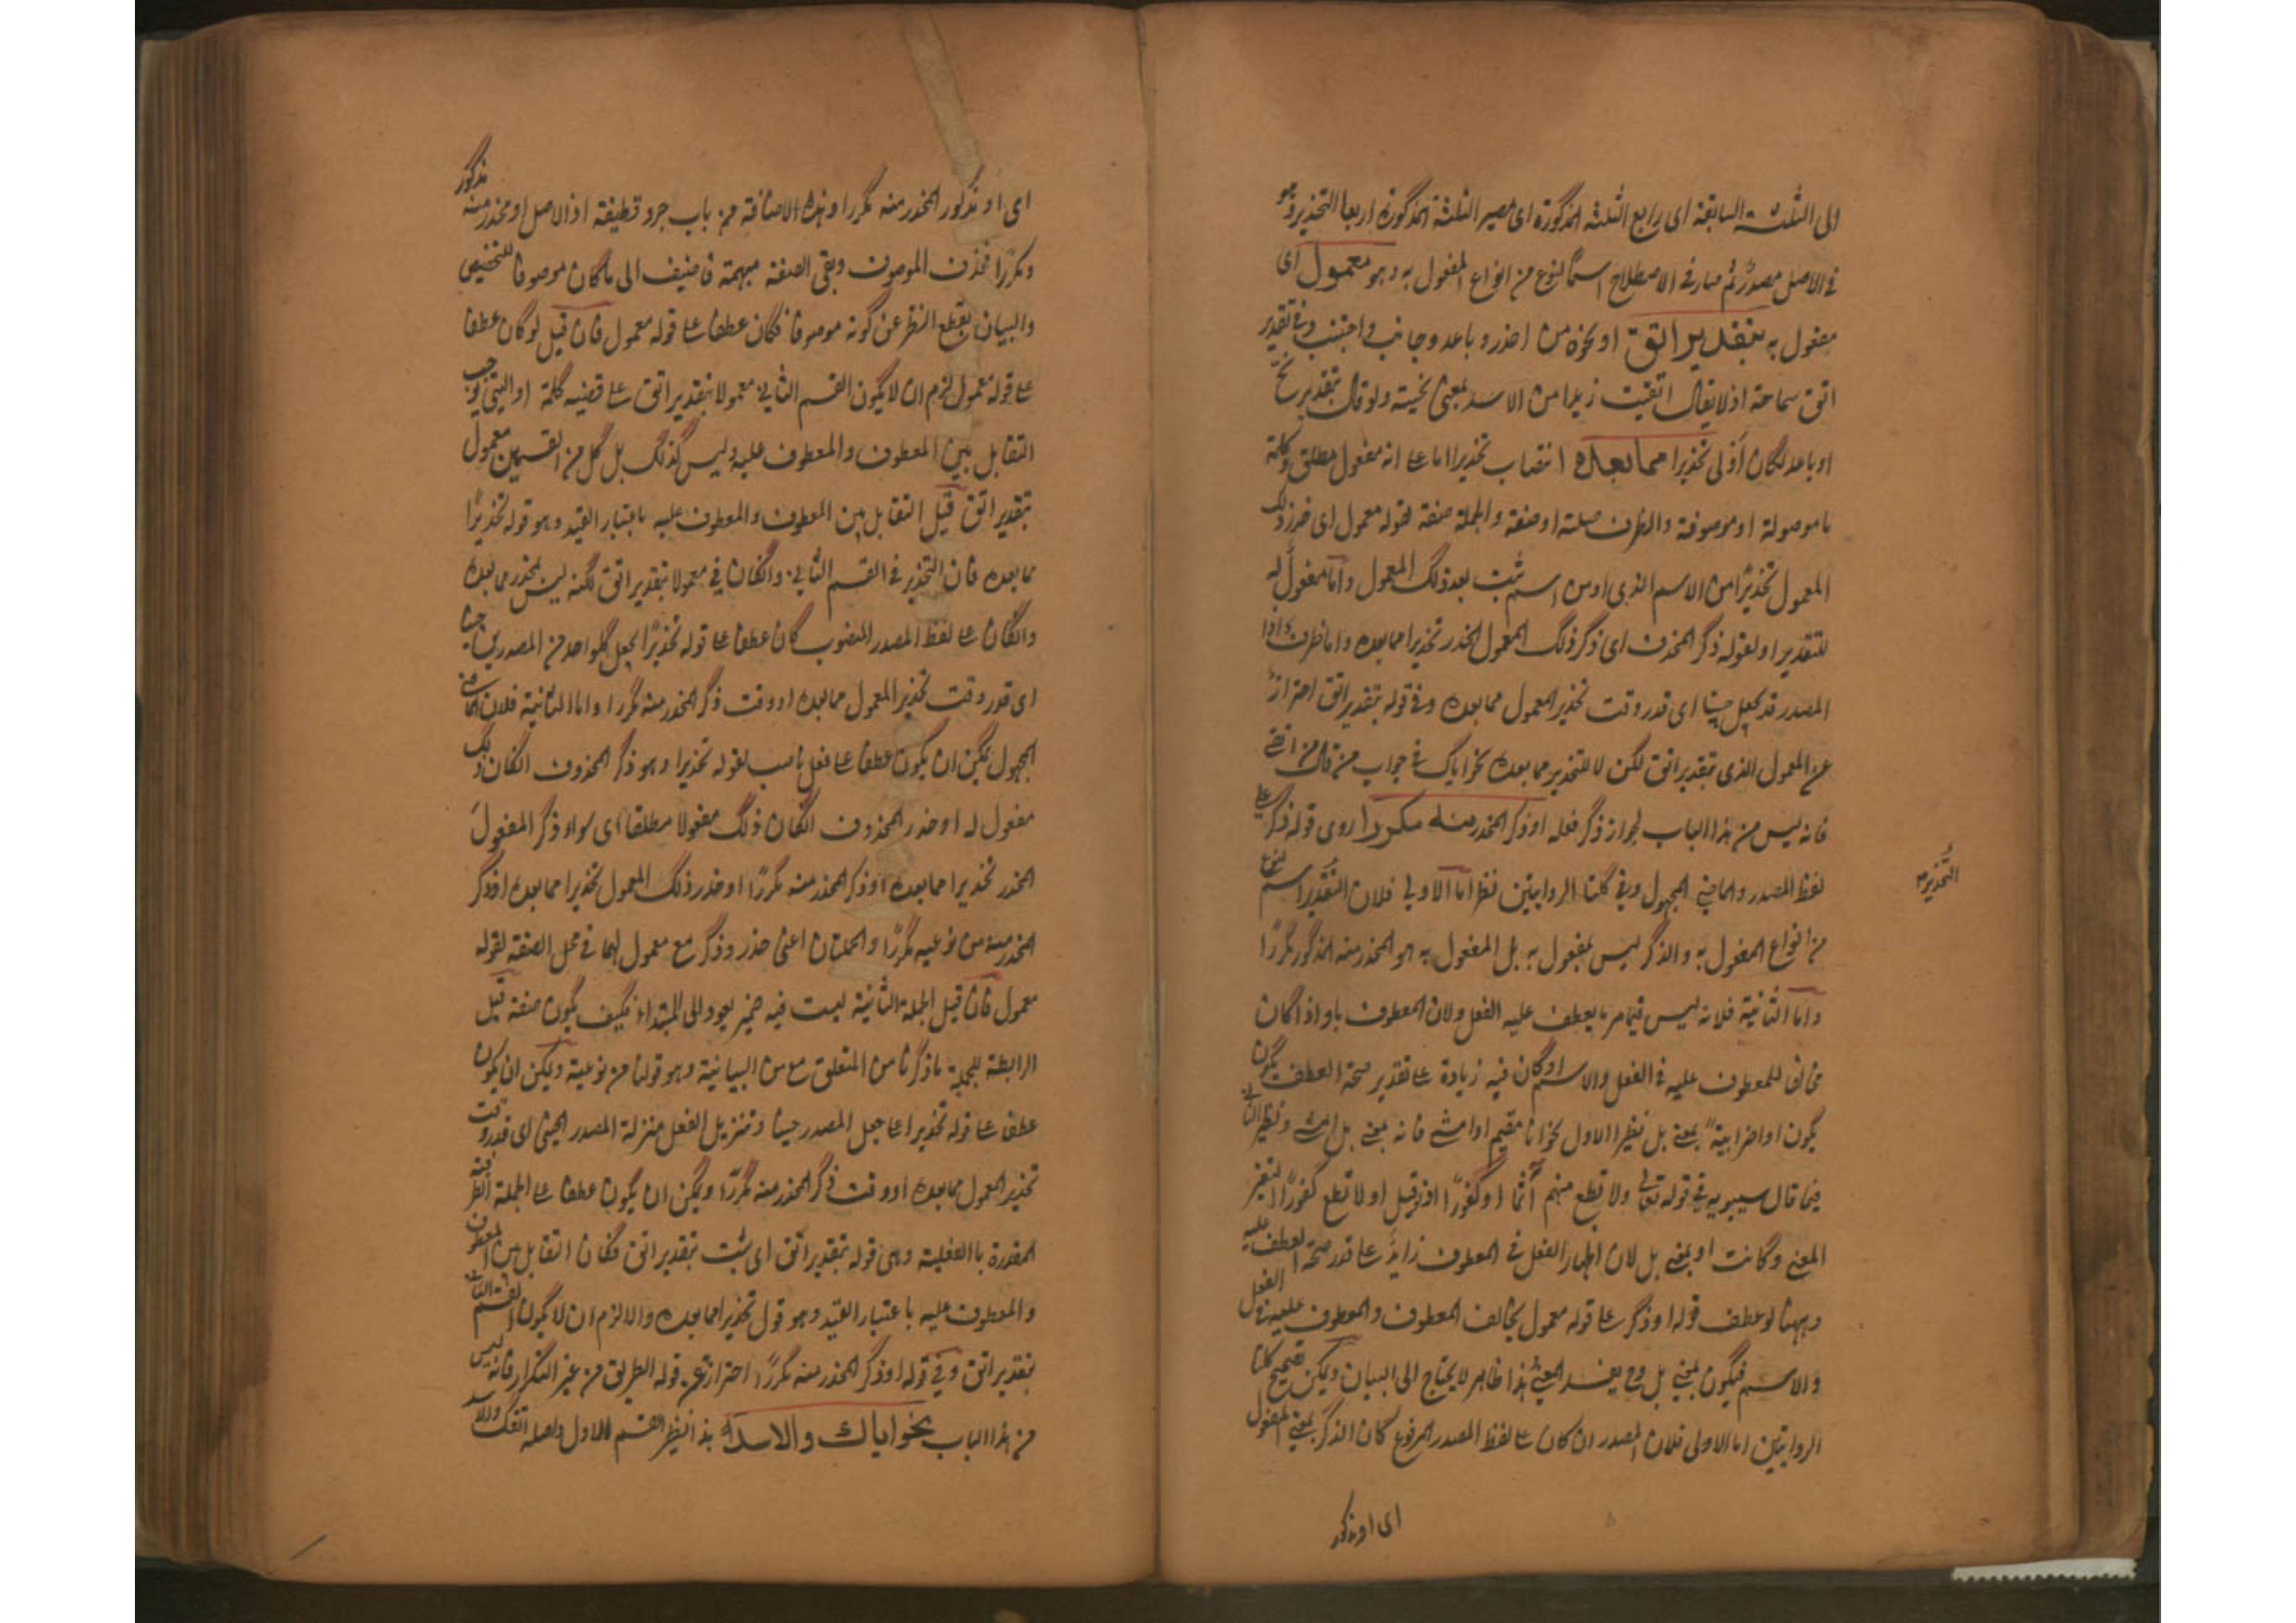 الى الثلثة السابقة اى رابع الثلثة المذكورة اى مصير الثلثة المذكورة اربعا التحذير وهو
فى الاصل مصدر ثم صار فى الاصطلاح اسما لنوع من انواع المفعول به وهو معمول اى
مفعول به بتقدير اتق او نحوه من احذر وباعد وجانب واجتنب وفى تقدير
اتق سماحة اذ لا يقال اتقيت زيدا من الاسد بمعنى نحيته ولو قال بتقدير نح
او باعد لكان اولى تحذيرا مما بعده انتصاب تحذيرا اما على انه مفعول مطلق وكلمة
ما موصولة او موصوفة والظرف صلة او صفة والجملة صفة لقوله معمول اى حذر ذلك
المعمول تحذيرا من الاسم الذى او من اسم ثبت بعد ذلك المعمول واما مفعول له
للتقدير او لقوله ذكر المحذوف اى ذكر ذلك المعمول المحذر تحذيرا مما بعده واما ظرف اذا
المصدر قد يجعل حينا اى قدر وقت تحذير المعمول مما بعده وفى قوله بتقدير اتق احتراز
عن المعمول الذى بتقدير اتق لكن لا للتحذير مما بعده نحو اياك فى جواب من قال من اتقى
فانه ليس من هذا الباب لجواز ذكر فعله او ذكر المحذر منه مكررا روى قوله ذكر على
لفظ المصدر والماضى المجهول وفى كلتا الروايتين نظر اما الاولى فلان التقدير اسم لنوع
التحذير م
من انواع المفعول به والذكر ليس بمفعول به بل المفعول به هو المحذر منه المذكور مكررا
واما الثانية فلانه ليس فيما مر ما يعطف عليه الفعل ولان المعطوف باو اذا كان
مخالفا للمعطوف عليه فى الفعل والاسم او كان فيه زيادة على تقدير صحة العطف يكون
يكون او اضرابية بمعنى بل نظير الاول نحو انا مقيم او امشى فانه بمعنى بل امشى ونظير الثانى
فيما قال سيبويه فى قوله تعالى ولا تطع منهم آثما او كفورا اذ لو قيل او لا تطع كفورا لتغير
المعنى وكانت او بمعنى بل لان اظهار الفعل فى المعطوف زايد على قدر صحة العطف عليه
وههنا لو عطف قوله او ذكر على قوله معمول يخالف المعطوف والمعطوف عليه فى الفعل
والاسم فيكون بمعنى بل وح يفسد المعنى هذا ظاهر لا يحتاج الى البيان ويمكن تصحيح كلتا
الروايتين اما الاولى فلان المصدر ان كان على لفظ المصدر المرفوع كان الذكر بمعنى المفعول
اى او مذكور
اى او مذكور المحذر منه مكررا وهذه الاضافة من باب جرد قطيفة اذ الاصل او محذر منه مذكور
ومكررا فحذف الموصوف وبقى الصفة مبهمة فاضيف الى ما كان موصوفا للتخصيص
والبيان بقطع النظر عن كونه موصوفا فكان عطفا على قوله معمول فان قيل لو كان عطفا
على قوله معمول لزم ان لا يكون القسم الثانى معمولا بتقدير اتق على قضية كلمة او التى يوجب
التقابل بين المعطوف والمعطوف عليه وليس كذلك بل كل من القسمين معمول
بتقدير اتق قيل التقابل بين المعطوف والمعطوف عليه باعتبار القيد وهو قوله تحذيرا
مما بعده فان التحذير فى القسم الثانى وان كان فى معمولا بتقدير اتق لكنه ليس بمحذر مما بعده
وان كان على لفظ المصدر المنصوب كان عطفا على قوله تحذيرا بجعل كل واحد من المصدرين حينا
اى قدر وقت تحذير المعمول مما بعده او وقت ذكر المحذر منه مكررا واما الثانية فلان الماضى
المجهول يمكن ان يكون عطفا على فعل ناصب لقوله تحذيرا وهو ذكر المحذوف ان كان ذلك
مفعول له او حذر المحذوف ان كان ذلك مفعولا مطلقا اى سواء ذكر المفعول
المحذر تحذيرا مما بعده او ذكر المحذر منه مكررا او حذر ذلك المعمول تحذيرا مما بعده او ذكر
المحذر منه من نوعيه مكررا والجملتان اعنى حذر وذكر مع معمول لهما فى محل الصفة لقوله
معمول فان قيل الجملة الثانية ليست فيه ضمير يعود الى المبتدا فكيف يكون صفة قيل
الرابطة للجملة ما ذكرنا من المتعلق مع من البيانية وهو قولنا من نوعية ويمكن ان يكون
عطفا على قوله تحذيرا على جعل المصدر حينا وتنزيل الفعل منزلة المصدر الحينى اى قدر وقت
تحذير المعمول مما بعده او وقت ذكر المحذر منه مكررا ويمكن ان يكون عطفا على الجملة الظرفية
المقدرة بالفعلية وهى قوله بتقدير اتق اى ثبت بتقدير اتق فكان التقابل بين المعطوف
والمعطوف عليه باعتبار القيد وهو قول تحذيرا مما بعده والا لزم ان لا يكون القسم الثانى
بتقدير اتق وفى قوله او ذكر المحذر منه مكررا احتراز عن قوله الطريق من غير التكرار فانه ليس
من هذا الباب نحو اياك والاسد هذا نظير القسم الاول واصله اتقك والاسد